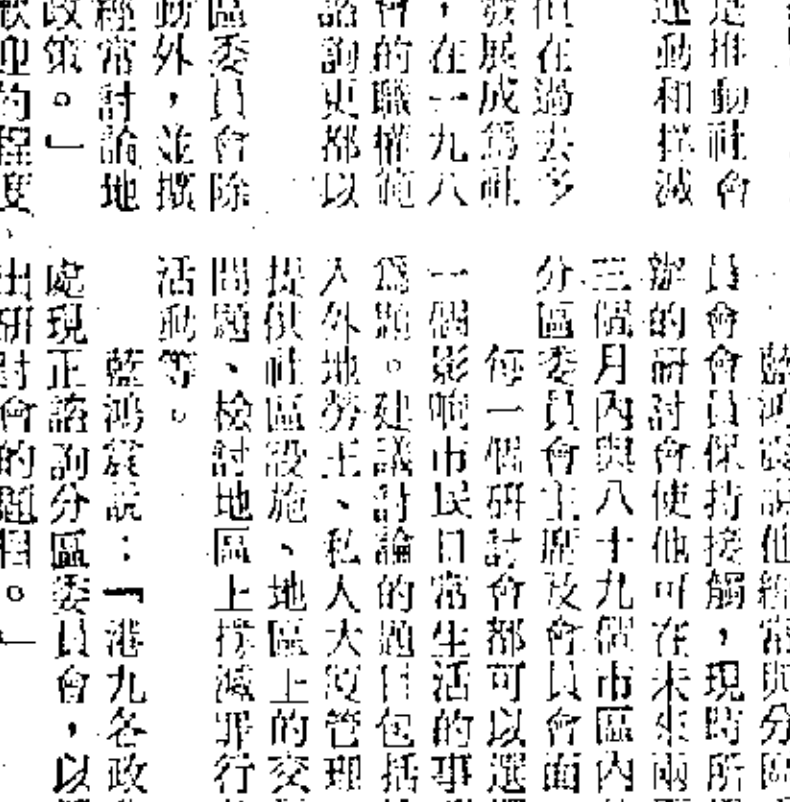 是推動社會
運動和撲滅
但在過去多
發展成爲社
，在一九八
會的職權範
諮詢更都以
區委員會除
動外，並擴
經常討論地
政策。」
歡迎的程度
藍鴻震說他經常與分區
員會會員保持接觸，現時所
辦的研討會使他可在未來兩
三個月內與八十九個市區內
分區委員會主席及會員會面
每一個研討會都可以選
一個影响市民日常生活的事
爲題。建議討論的題目包括
入外地勞工、私人大厦管理
提供社區設施、地區上的交
問題、檢討地區上撲滅罪行
活動等。
藍鴻震說：「港九各政
處現正諮詢分區委員會，以
出研討會的題目。」